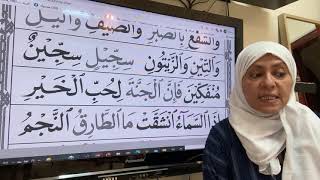 وَالشَّفْعِ بِالصَّبْرِ وَالصَّيْفِ وَالَّيْلِ
وَالتِّيْنِ وَالزَّيْتُوْنِ سِجِّيْلٍ سِجِّيْنٌ
مُنْفَكِّيْنَ فَاِنَّ الْجَنَّةَ لِحُبِّ الْخَيْرِ
اِذَا السَّمَآءُ انْشَقَّتْ مَا الطَّارِقُ النَّجْمُ